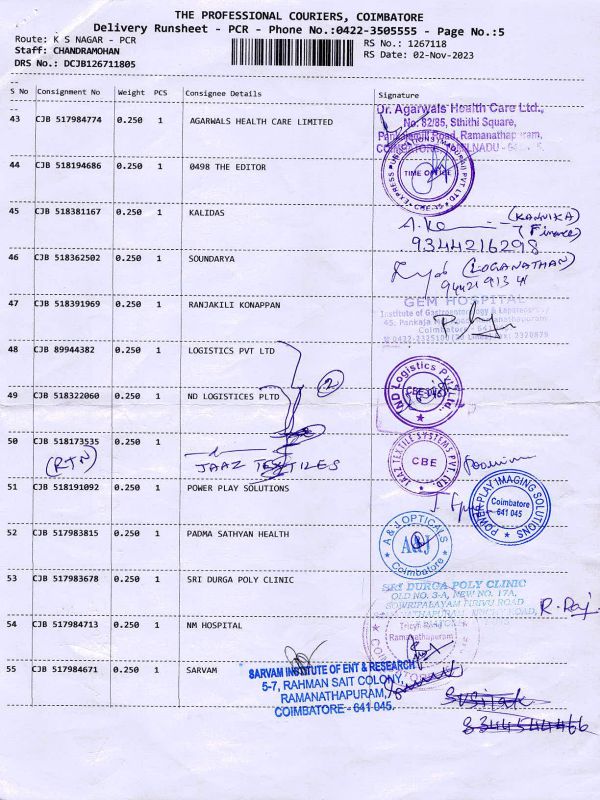 THE PROFESSIONAL COURIERS, COIMBATORE
Delivery Runsheet - PCR - Phone No.:0422-3505555 - Page No.:5
Route: K S NAGAR - PCR
RS No.: 1267118
Staff: CHANDRAMOHAN
RS Date: 02-Nov-2023
DRS No.: DCJB126711805
S No Consignment No Weight PCS Consignee Details Signature
43 CJB 517984774 0.250 1 AGARWALS HEALTH CARE LIMITED
Dr. Agarwals Health Care Ltd.,
No. 82/85, Sthithi Square,
Road, Ramanathapuram,
44 CJB 518194686 0.250 1 0498 THE EDITOR
EXPRESS PUBLICATIONS (MADURAI) PVT LTD
TIME OFFICE
CBE-45
45 CJB 518381167 0.250 1 KALIDAS
(KANVIKA)
(Finance)
9344216298
46 CJB 518362502 0.250 1 SOUNDARYA
(LOGANATHAN)
47 CJB 518391969 0.250 1 RANJAKILI KONAPPAN
GEM HOSPITAL
Institute of Gastroenterology &
45, Pankaja
Coimbatore
48 CJB 89944382 0.250 1 LOGISTICS PVT LTD
2
49 CJB 518322060 0.250 1 ND LOGISTICES PLTD
ND Logistics Pvt. Ltd.
50 CJB 518173535 0.250 1
(RTN)
JAAZ TEXTILES
JAAZ TEXTILE SYSTEMS PVT. LTD.
CBE
51 CJB 518191092 0.250 1 POWER PLAY SOLUTIONS
POWER PLAY IMAGING SOLUTIONS
Coimbatore
641 045
52 CJB 517983815 0.250 1 PADMA SATHYAN HEALTH
A & J OPTICALS
A&J
Coimbatore
53 CJB 517983678 0.250 1 SRI DURGA POLY CLINIC
SRI DURGA POLY CLINIC
OLD NO. 3-A, NEW NO. 17A,
SOWRIPALAYAM PIRIVU ROAD
R. Raj
54 CJB 517984713 0.250 1 NM HOSPITAL
Trichy Road
Ramanathapuram
55 CJB 517984671 0.250 1 SARVAM
SARVAM INSTITUTE OF ENT & RESEARCH
5-7, RAHMAN SAIT COLONY,
RAMANATHAPURAM,
COIMBATORE - 641 045.
8344544466